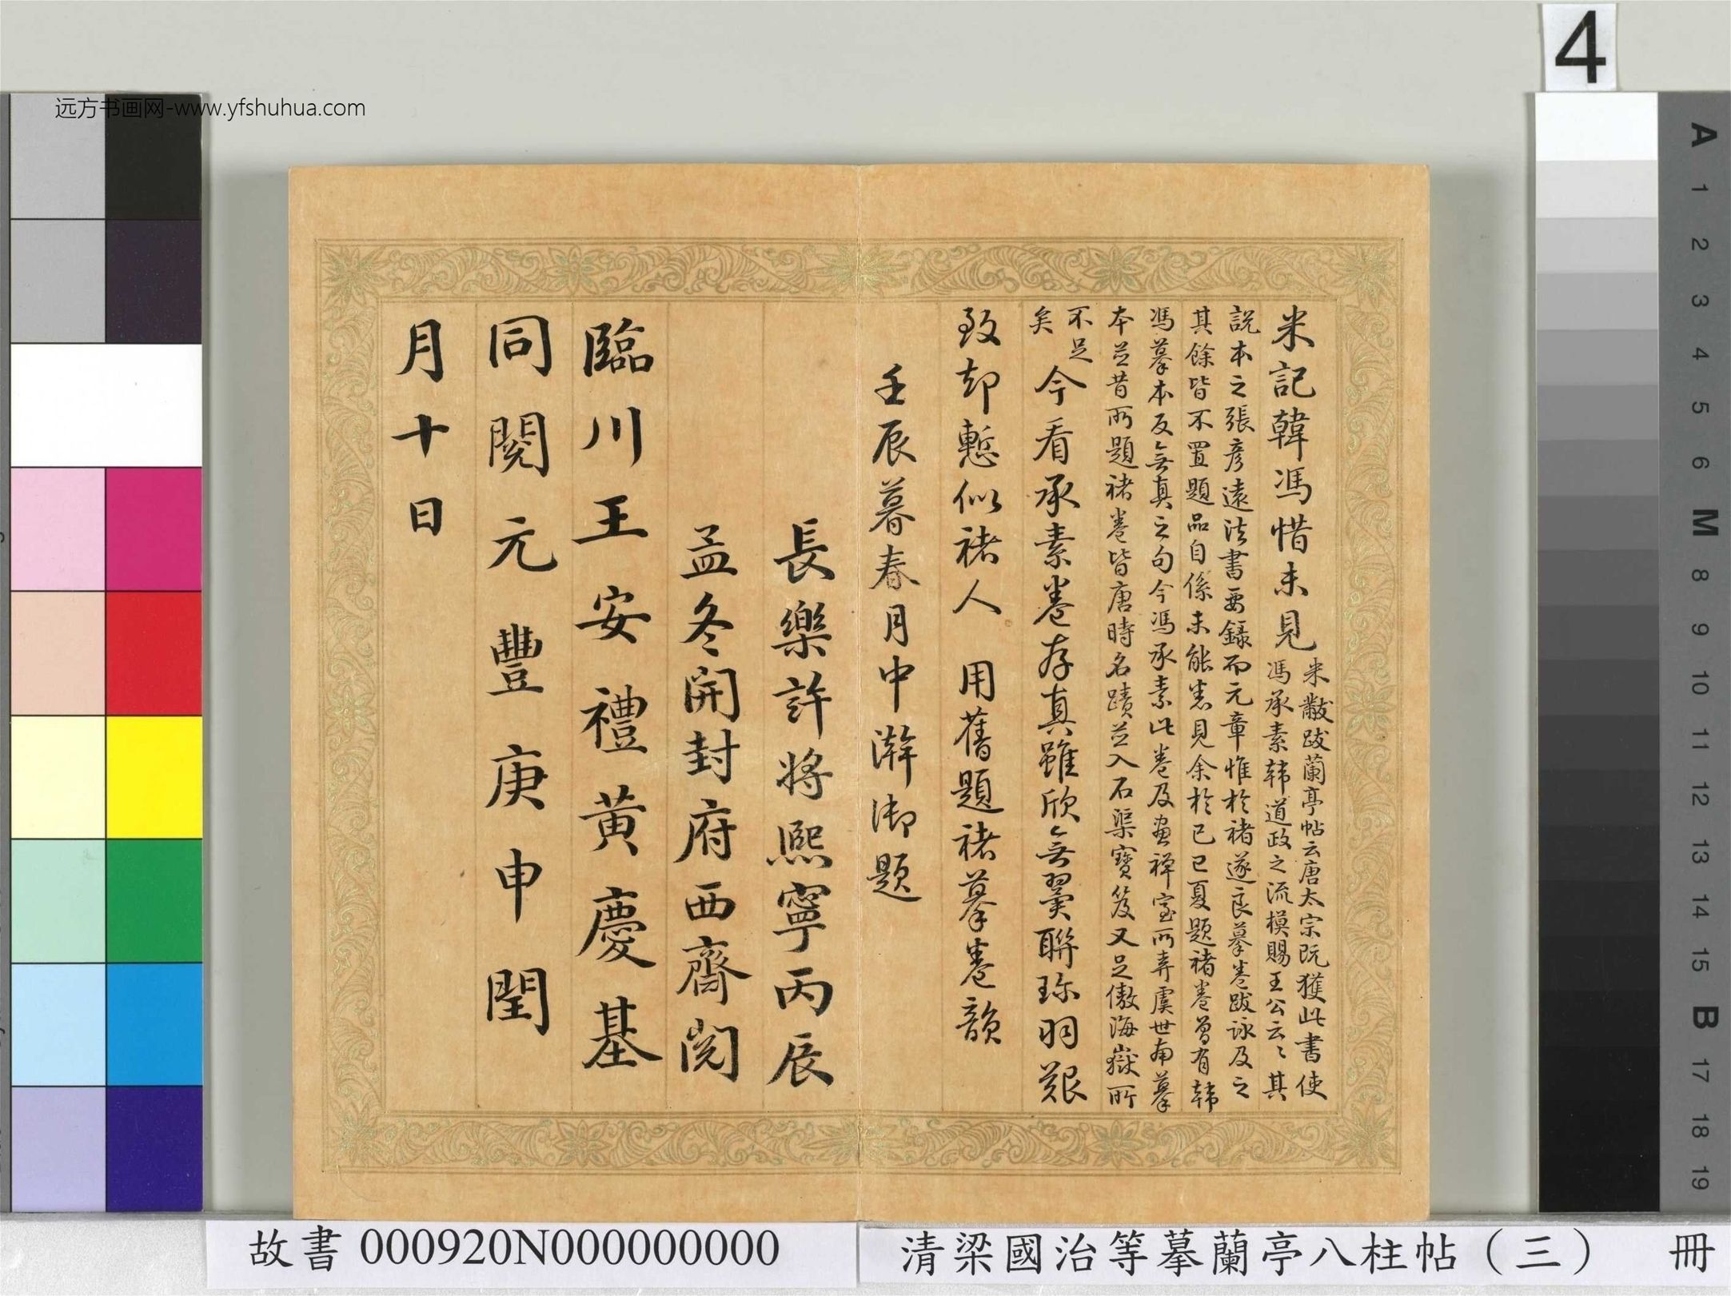 远方书画网-www.yfshuhua.com
4
米記韓馮惜未見
米黻跋蘭亭帖云唐太宗既獲此書使
馮承素韩道政之流模賜王公云〻其
說本之張彥遠法書要録而元章惟於褚遂良摹卷跋詠及之
其餘皆不置題品自係未能悉見余於己巳夏題褚卷曾有韩
馮摹本反無真之句今馮承素此卷及畫禅室所弆虞世南摹
本並昔所題褚卷皆唐時名蹟並入石渠寶笈又足傲海嶽所
不足
矣
今看承素卷存真雖欣無翼聯珎羽艱
致却慙似褚人 用舊題褚摹卷韻
壬辰暮春月中澣御题
長樂許将熙寧丙辰
孟冬開封府西齋閱
臨川王安禮黄慶基
同閱元豐庚申閏
月十日
A
1
2
3
4
5
6
M
8
9
10
11
12
13
14
15
B
17
18
19
故書 000920N000000000
清梁國治等摹蘭亭八柱帖（三） 冊